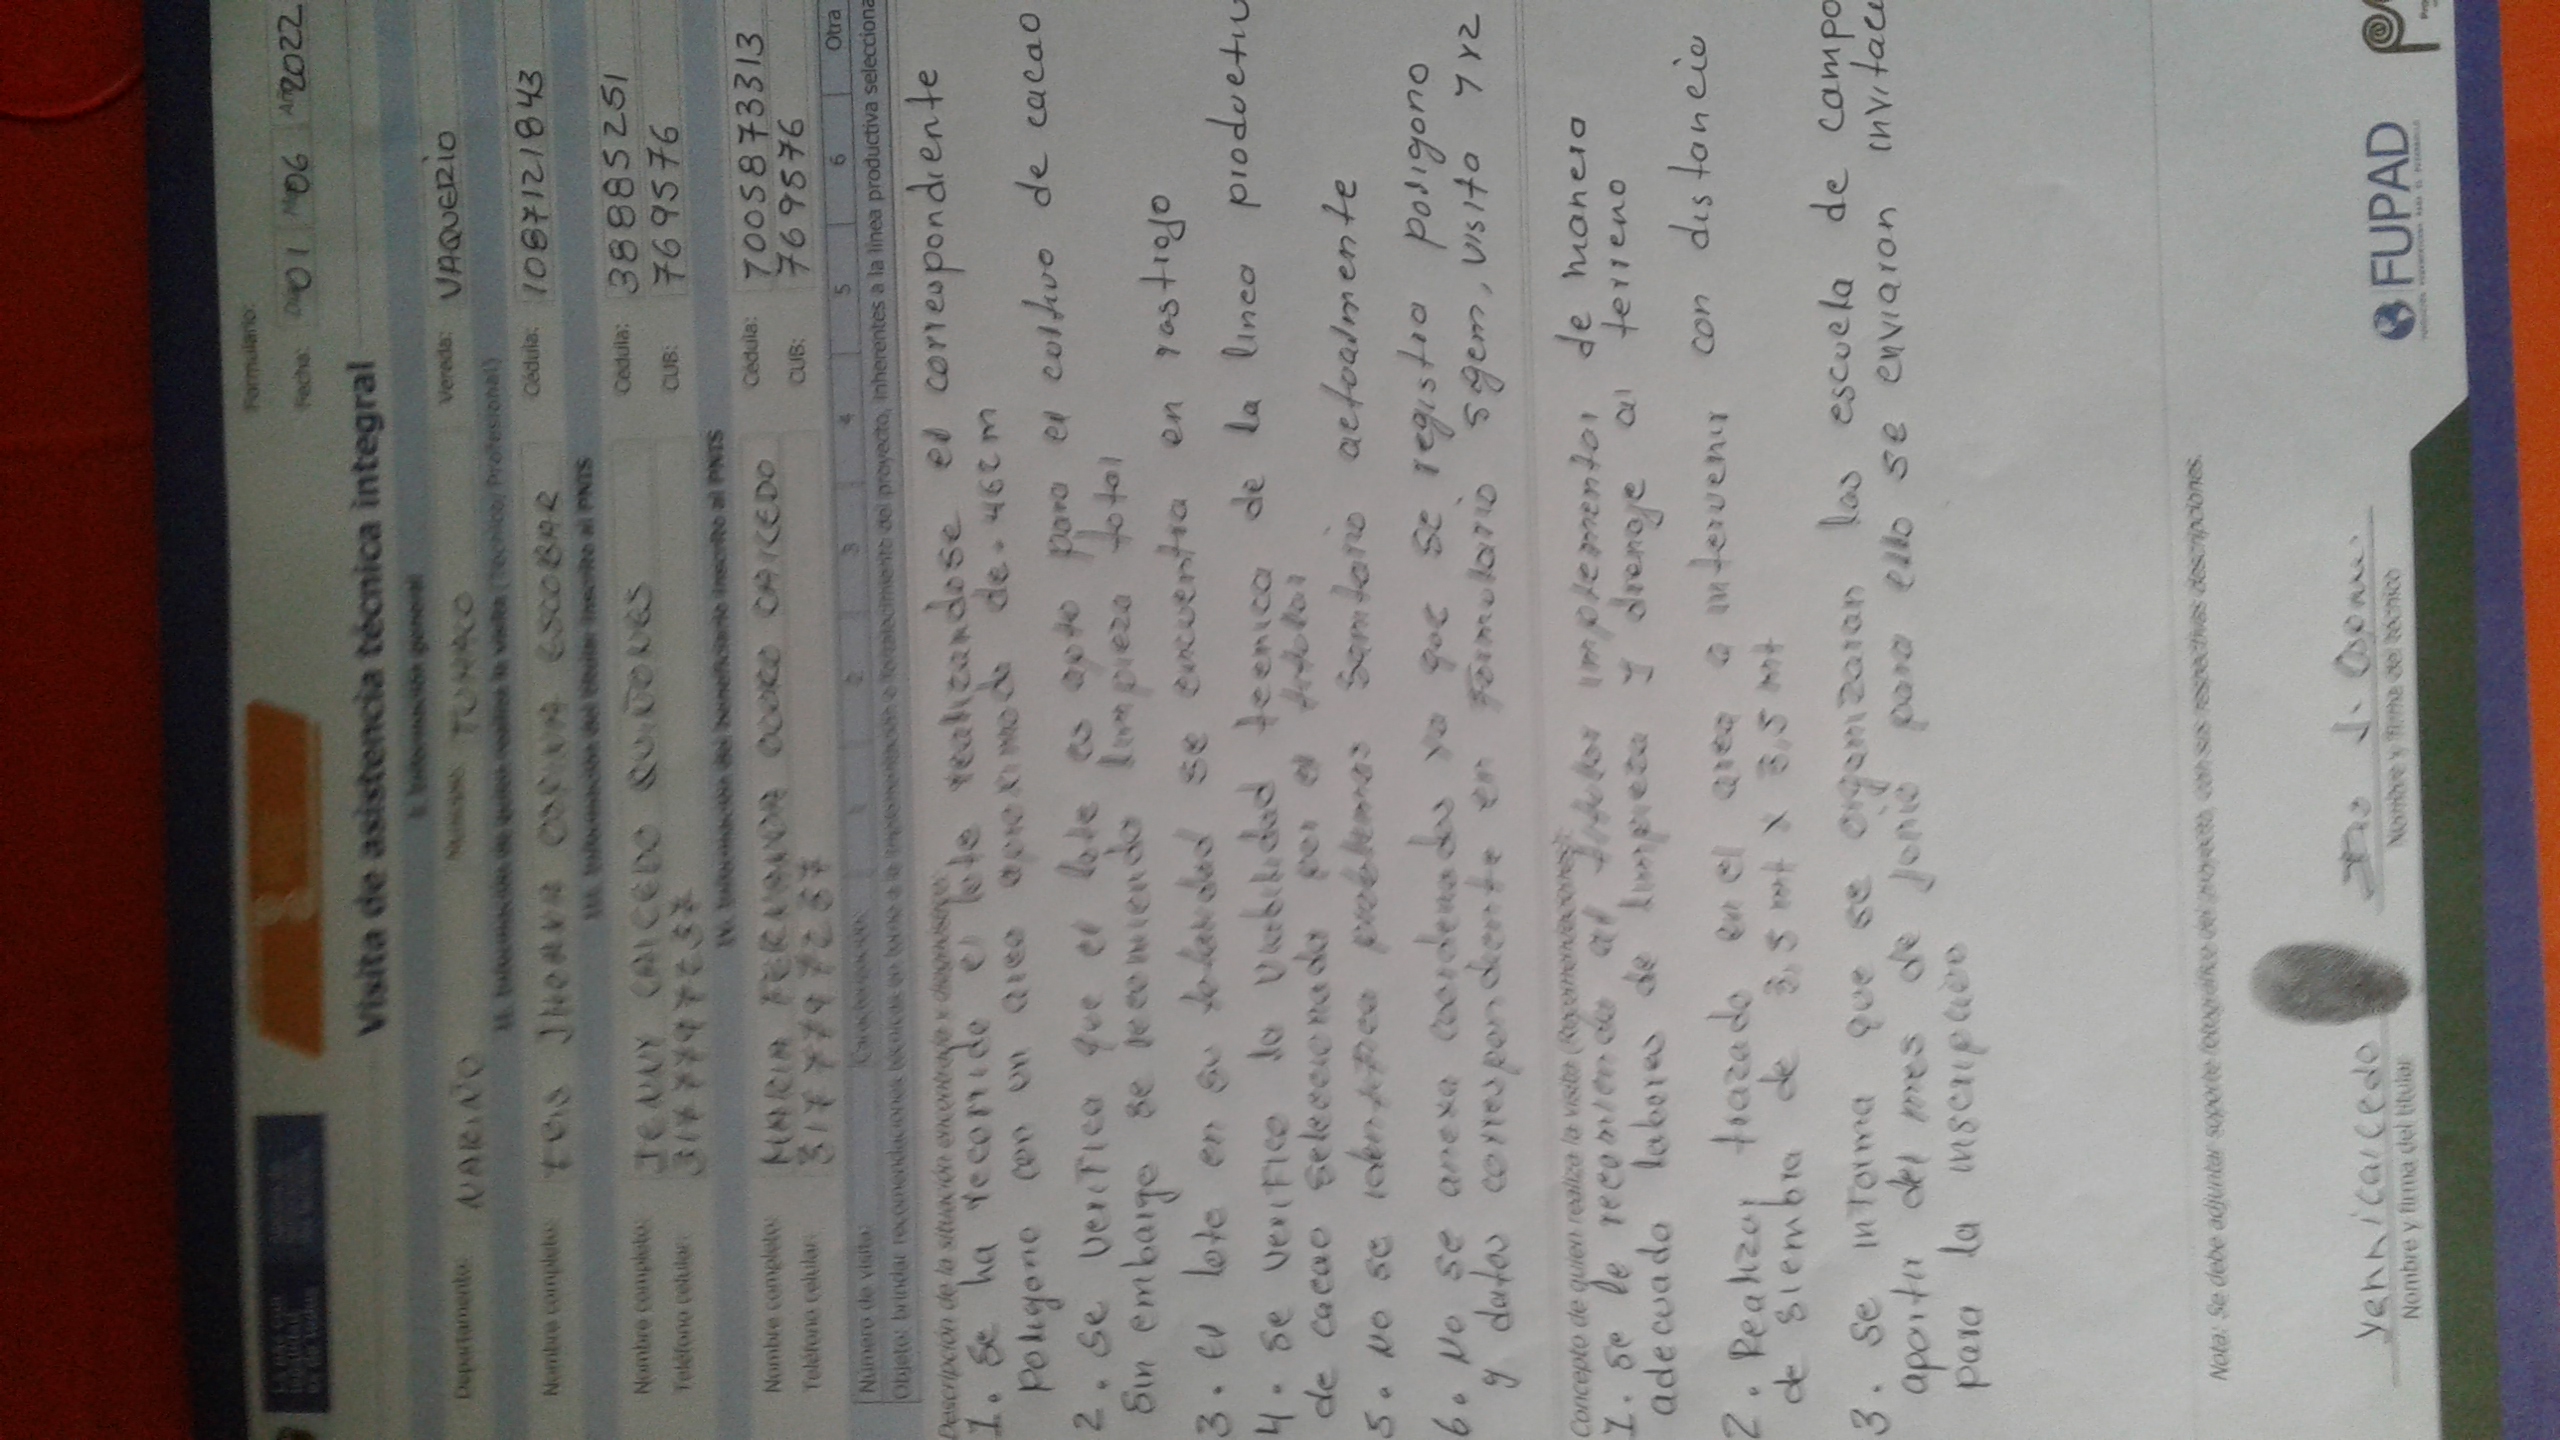 Formulario:
Fecha: Día 01 Mes 06 Año 2022
Visita de asistencia técnica integral
I. Información general
Departamento: NARIÑO Municipio: TUMACO Vereda: VAQUERIO
II. Información de quien realiza la visita (Técnico/ Profesional)
Nombre completo: JHOANA OSPINA ESCOBAR Cédula: 1087121843
III. Información del titular inscrito al PNIS
Nombre completo: JENNY CAICEDO QUIÑONES Cédula: 38885251
Teléfono celular: 3177797237 CUB: 7695576
IV. Información del beneficiario inscrito al PNIS
Nombre completo: MARIA FERNANDA OCORO CAICEDO Cédula: 1005873313
Teléfono celular: 3177797237 CUB: 7695576
Número de visita: Caracterización: 1 2 3 4 5 6 Otra
Objeto: brindar recomendaciones técnicas en torno a la implementación o fortalecimiento del proyecto, inherentes a la línea productiva selecciona
Descripción de la situación encontrada y diagnóstico:
1. Se ha recorrido el lote realizandose el correspondiente
poligono con un area aproximado de. 462 m
2. Se verifica que el lote es apto para el cultivo de cacao
Sin embargo se recomienda limpieza total
3. el lote en su totalidad se encuentra en rastrojo
4. Se verifico la viabilidad tecnica de la linea productiv
de cacao seleccionada por el titular
5. No se identifica problemas Sanitario actualmente
6. No se anexa coordenadas ya que se registra poligono
y datos correspondiente en Formulario sgem, visita 1 y 2
Concepto de quien realiza la visita (Recomendaciones):
1. Se le recomienda al titular implementar de manera
adecuada labores de limpieza y drenaje al terreno
2. Realizar trazado en el area a intervenir con distancia
de siembra de 3,5 mt x 3,5 mt
3. Se informa que se organizaran las escuela de campo
apartir del mes de Junio para ello se enviaron invitaci
para la inscripcion
Nota: Se debe adjuntar soporte fotográfico del proyecto, con sus respectivas descripciones.
Yenni caicedo J. Ospina
Nombre y firma del titular Nombre y firma del técnico
FUPAD